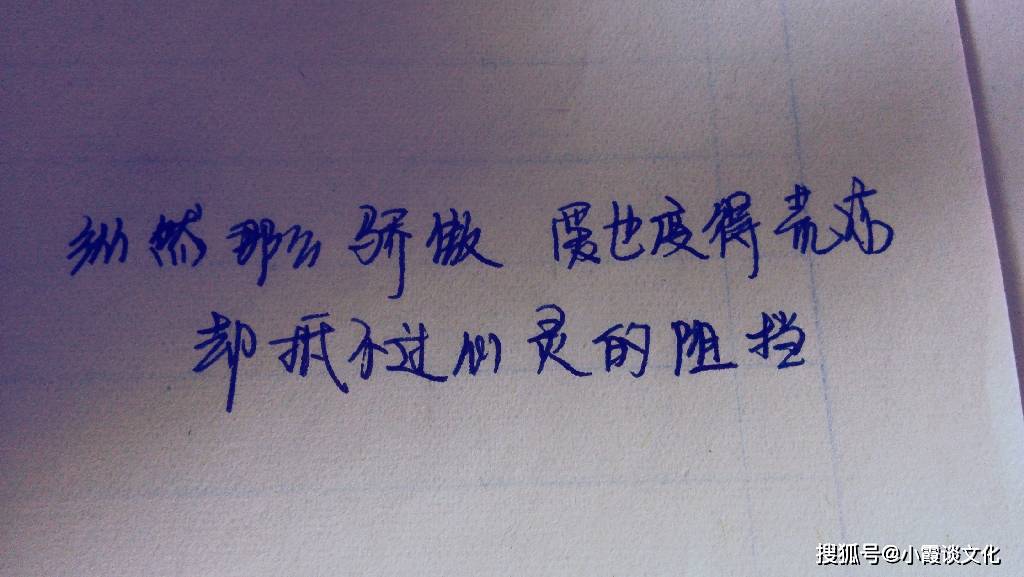 纵然那么骄傲 爱也变得荒凉
却抵不过心灵的阻挡
搜狐号@小霞谈文化